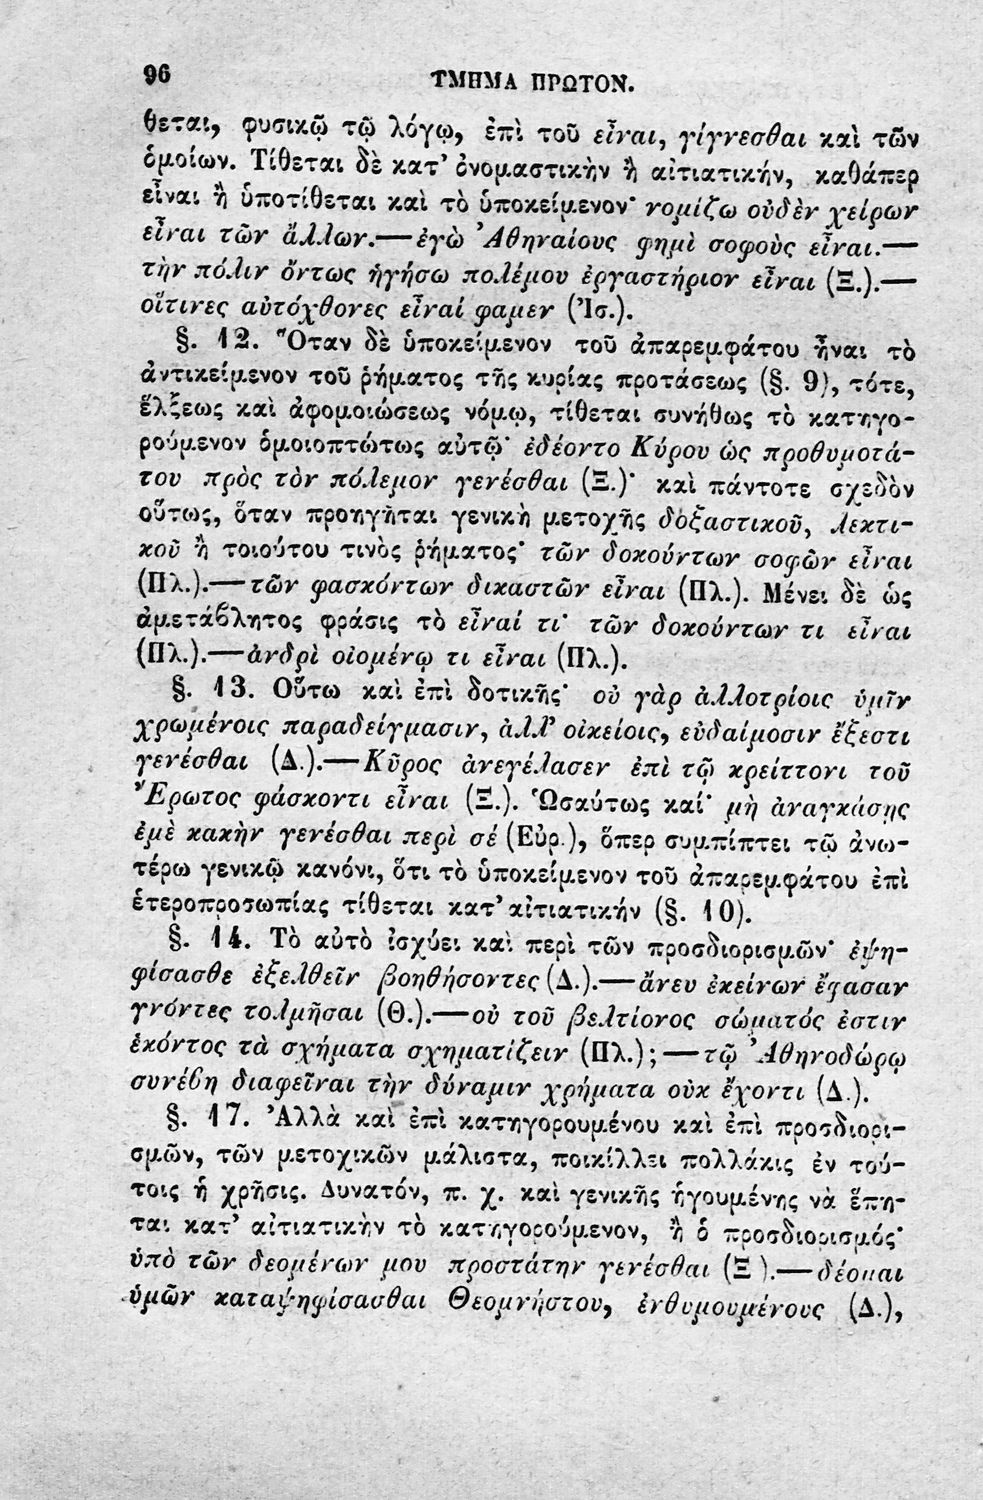 96
ΤΜΗΜΑ ΠΡΩΤΟΝ.
θεται, φυσικῷ τῷ λόγῳ, ἐπὶ τοῦ εἶναι, γίγνεσθαι καὶ τῶν
ὁμοίων. Τίθεται δὲ κατ' ὀνομαστικὴν ἢ αἰτιατικήν, καθάπερ
εἶναι ἢ ὑποτίθεται καὶ τὸ ὑποκείμενον· νομίζω οὐδὲν χείρων
εἶναι τῶν ἄλλων.—ἐγὼ Ἀθηναίους φημὶ σοφοὺς εἶναι.—
τὴν πόλιν ὄντως ἡγήσω πολέμου ἐργαστήριον εἶναι (Ξ.).—
οἵτινες αὐτόχθονες εἶναί φαμεν (Ἰσ.).
§. 12. Ὅταν δὲ ὑποκείμενον τοῦ ἀπαρεμφάτου ἦναι τὸ
ἀντικείμενον τοῦ ῥήματος τῆς κυρίας προτάσεως (§. 9), τότε,
ἕλξεως καὶ ἀφομοιώσεως νόμῳ, τίθεται συνήθως τὸ κατηγο-
ρούμενον ὁμοιοπτώτως αὐτῷ· ἐδέοντο Κύρου ὡς προθυμοτά-
του πρὸς τὸν πόλεμον γενέσθαι (Ξ.)· καὶ πάντοτε σχεδὸν
οὕτως, ὅταν προηγῆται γενικὴ μετοχῆς δοξαστικοῦ, λεκτι-
κοῦ ἢ τοιούτου τινὸς ῥήματος· τῶν δοκούντων σοφῶν εἶναι
(Πλ.).—τῶν φασκόντων δικαστῶν εἶναι (Πλ.). Μένει δὲ ὡς
ἀμετάβλητος φράσις τὸ εἶναί τι· τῶν δοκούντων τι εἶναι
(Πλ.).—ἀνδρὶ οἰομένῳ τι εἶναι (Πλ.).
§. 13. Οὕτω καὶ ἐπὶ δοτικῆς· οὐ γὰρ ἀλλοτρίοις ὑμῖν
χρωμένοις παραδείγμασιν, ἀλλ' οἰκείοις, εὐδαίμοσιν ἔξεστι
γενέσθαι (Δ.).—Κῦρος ἀνεγέλασεν ἐπὶ τῷ κρείττονι τοῦ
Ἔρωτος φάσκοντι εἶναι (Ξ.). Ὡσαύτως καί· μὴ ἀναγκάσῃς
ἐμὲ κακὴν γενέσθαι περὶ σέ (Εὐρ.), ὅπερ συμπίπτει τῷ ἀνω-
τέρω γενικῷ κανόνι, ὅτι τὸ ὑποκείμενον τοῦ ἀπαρεμφάτου ἐπὶ
ἑτεροπροσωπίας τίθεται κατ' αἰτιατικήν (§. 10).
§. 14. Τὸ αὐτὸ ἰσχύει καὶ περὶ τῶν προσδιορισμῶν· ἐψη-
φίσασθε ἐξελθεῖν βοηθήσοντες (Δ.).—ἄνευ ἐκείνων ἔφασαν
γνόντες τολμῆσαι (Θ.).—οὐ τοῦ βελτίονος σώματός ἐστιν
ἑκόντος τὰ σχήματα σχηματίζειν (Πλ.);—τῷ Ἀθηνοδώρῳ
συνέβη διαφεῖναι τὴν δύναμιν χρήματα οὐκ ἔχοντι (Δ.).
§. 17. Ἀλλὰ καὶ ἐπὶ κατηγορουμένου καὶ ἐπὶ προσδιορι-
σμῶν, τῶν μετοχικῶν μάλιστα, ποικίλλει πολλάκις ἐν τού-
τοις ἡ χρῆσις. Δυνατόν, π. χ. καὶ γενικῆς ἡγουμένης νὰ ἕπη-
ται κατ' αἰτιατικὴν τὸ κατηγορούμενον, ἢ ὁ προσδιορισμός·
ὑπὸ τῶν δεομένων μου προστάτην γενέσθαι (Ξ.).—δέομαι
ὑμῶν καταψηφίσασθαι Θεομνήστου, ἐνθυμουμένους (Δ.),